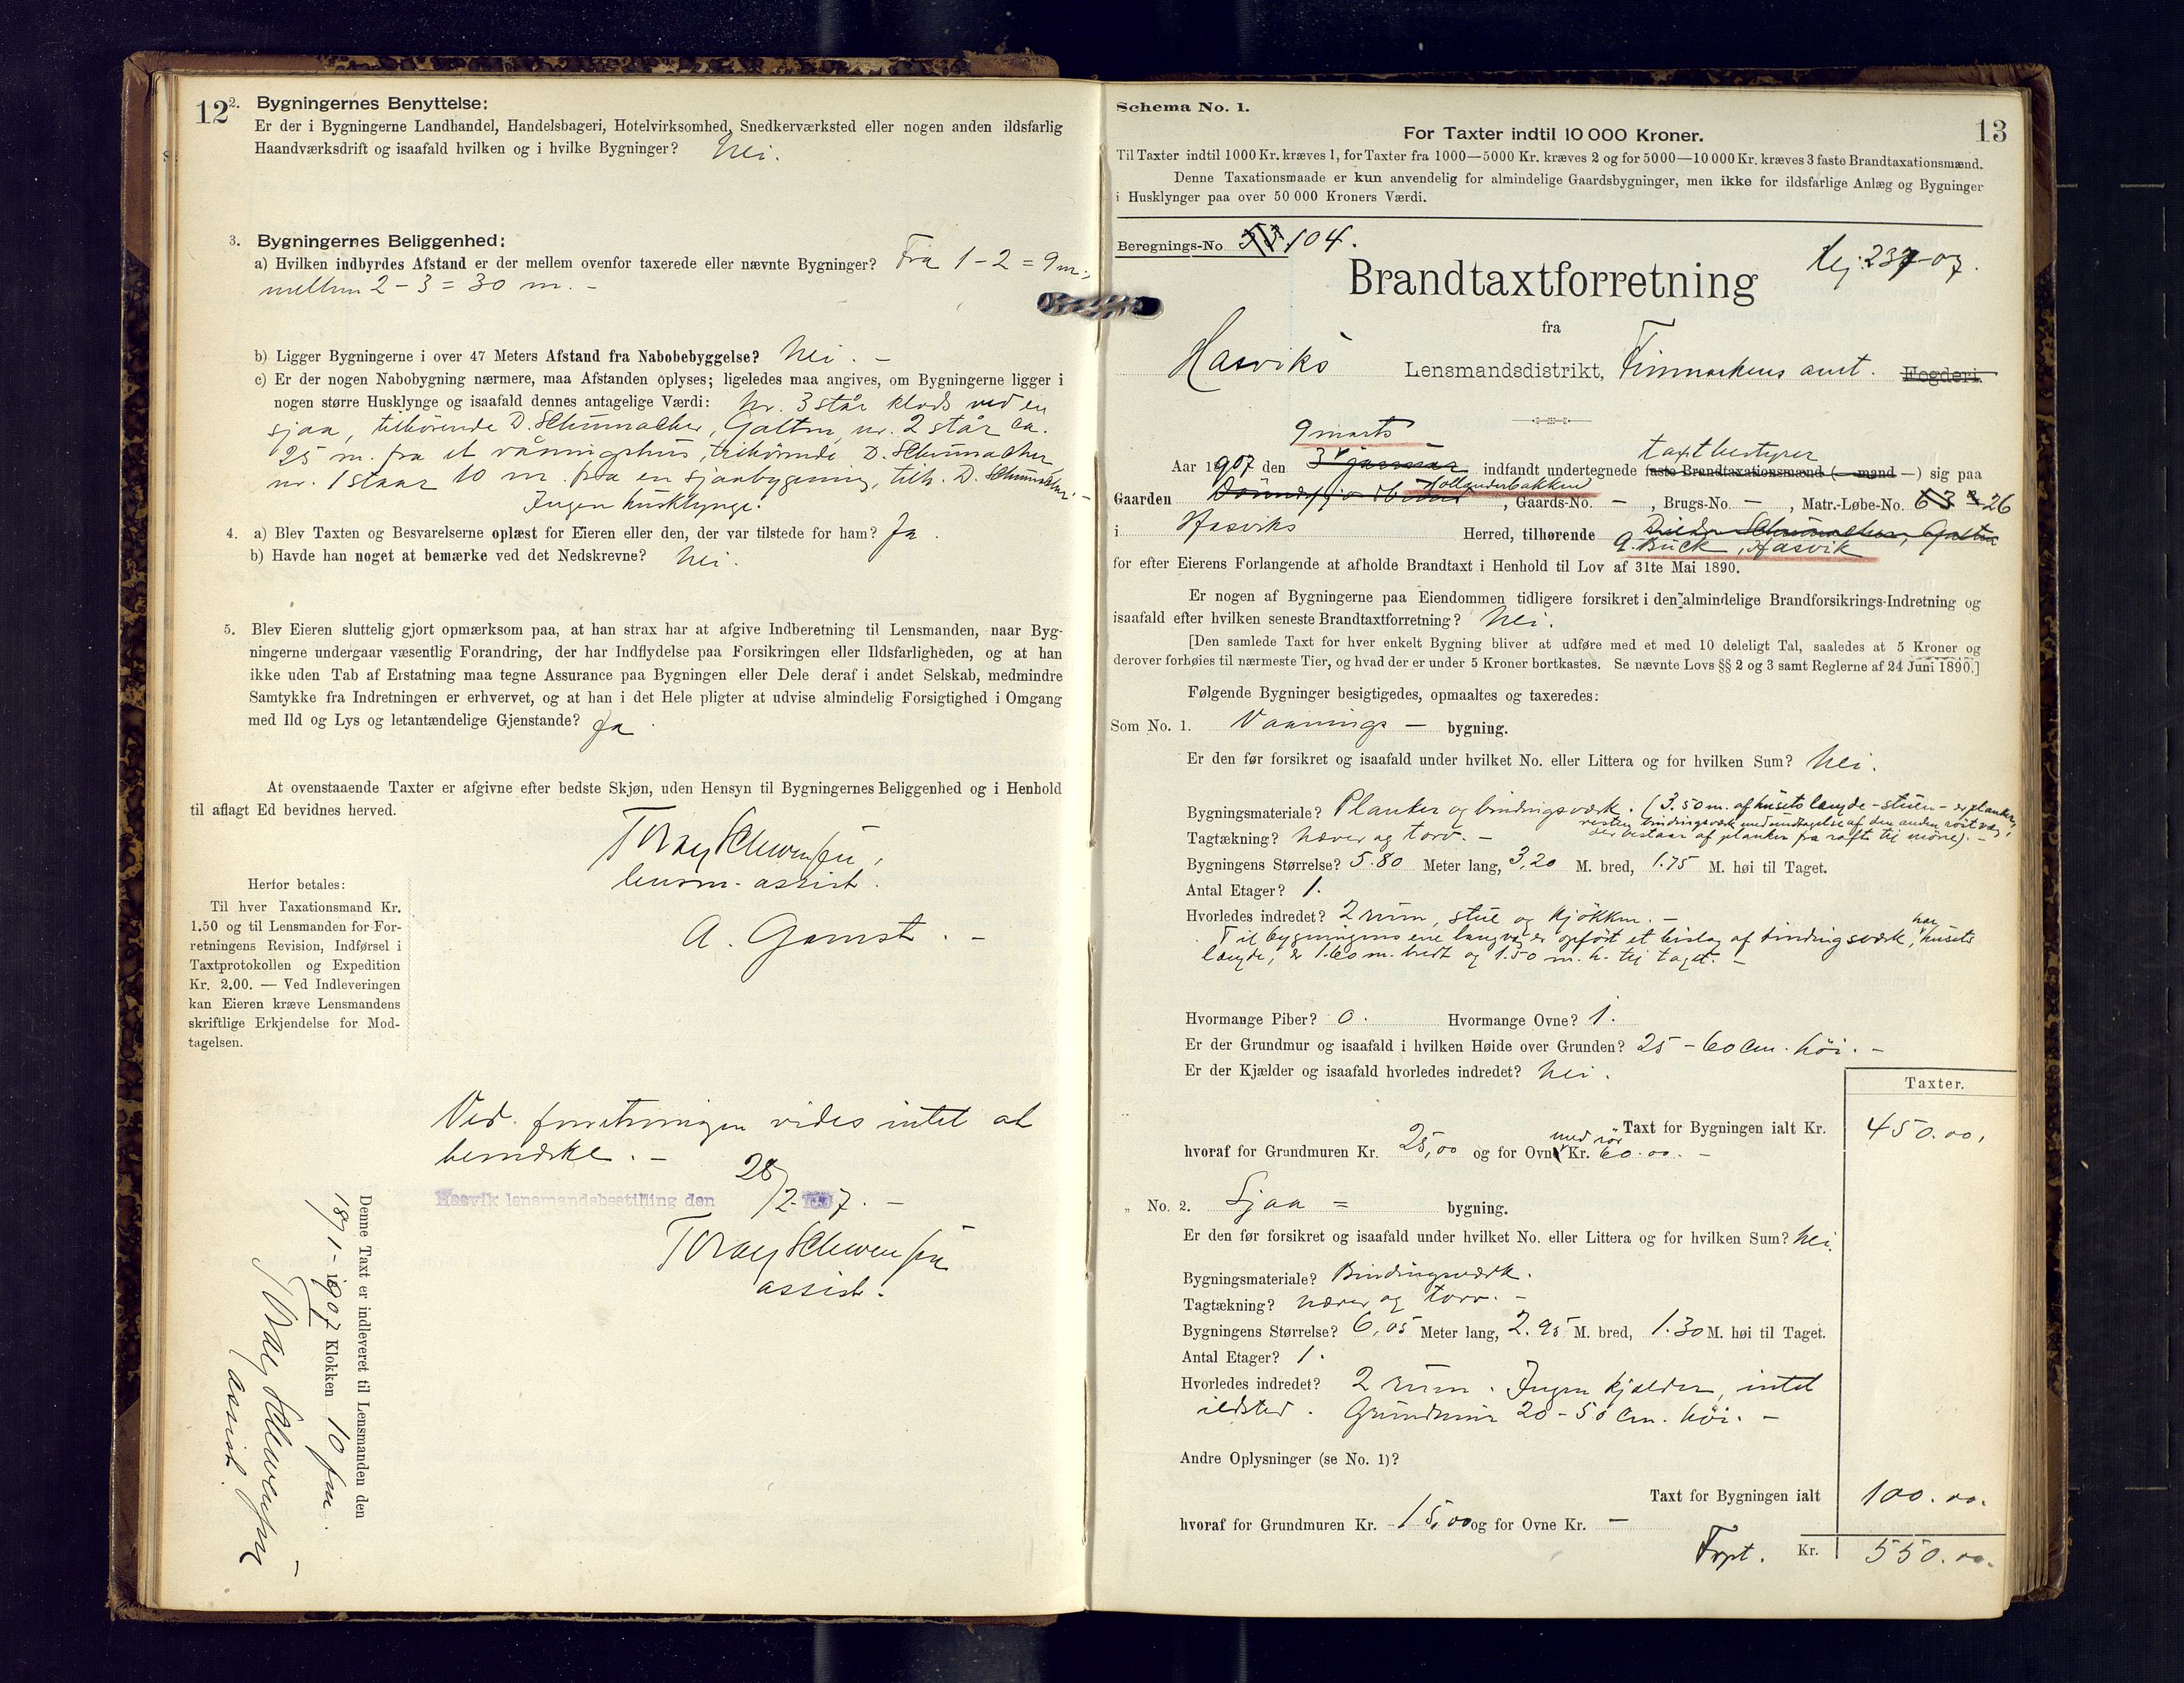 12
2. Bygningernes Benyttelse:
Er der i Bygningerne Landhandel, Handelsbageri, Hotelvirksomhed, Snedkerværksted eller nogen anden ildsfarlig
Haandværksdrift og isaafald hvilken og i hvilke Bygninger? Nei.
3. Bygningernes Beliggenhed:
a) Hvilken indbyrdes Afstand er der mellem ovenfor taxerede eller nævnte Bygninger? Fra 1-2 = 9 m.;
mellem 2-3 = 30 m. -
b) Ligger Bygningerne i over 47 Meters Afstand fra Nabobebyggelse? Nei. -
c) Er der nogen Nabobygning nærmere, maa Afstanden oplyses; ligeledes maa angives, om Bygningerne ligger i
nogen større Husklynge og isaafald dennes antagelige Værdi: Nr. 3 står klods ved en
sjaa, tilhörende D. Schumacher, Galten, nr. 2 står ca.
25 m. fra et våningshus, tilhörende D. Schumacher
nr. 1 staar 10 m. fra en sjaabygning, tilh. D. Schumacher. -
Ingen husklynge.
4. a) Blev Taxten og Besvarelserne oplæst for Eieren eller den, der var tilstede for ham? Ja.
b) Havde han noget at bemærke ved det Nedskrevne? Nei.
5. Blev Eieren sluttelig gjort opmærksom paa, at han strax har at afgive Indberetning til Lensmanden, naar Byg-
ningerne undergaar væsentlig Forandring, der har Indflydelse paa Forsikringen eller Ildsfarligheden, og at han
ikke uden Tab af Erstatning maa tegne Assurance paa Bygningen eller Dele deraf i andet Selskab, medmindre
Samtykke fra Indretningen er erhvervet, og at han i det Hele pligter at udvise almindelig Forsigtighed i Omgang
med Ild og Lys og letantændelige Gjenstande? Ja.
At ovenstaaende Taxter er afgivne efter bedste Skjøn, uden Hensyn til Bygningernes Beliggenhed og i Henhold
til aflagt Ed bevidnes herved.
lensm. assist.
A. Gamst. -
Herfor betales:
Til hver Taxationsmand Kr.
1.50 og til Lensmanden for For-
retningens Revision, Indførsel i
Taxtprotokollen og Expedition
Kr. 2.00. — Ved Indleveringen
kan Eieren kræve Lensmandens
skriftlige Erkjendelse for Mod-
tagelsen.
Ved forretningen vides intet at
bemærke. -
Hasvik lensmandsbestilling den 28/2-1907. -
assist.
Denne Taxt er indleveret til Lensmanden den
18/1-1907 Klokken 10 fm.
assist.
Schema No. 1.
13
For Taxter indtil 10 000 Kroner.
Til Taxter indtil 1000 Kr. kræves 1, for Taxter fra 1000—5000 Kr. kræves 2 og for 5000—10 000 Kr. kræves 3 faste Brandtaxationsmænd.
Denne Taxationsmaade er kun anvendelig for almindelige Gaardsbygninger, men ikke for ildsfarlige Anlæg og Bygninger
i Husklynger paa over 50 000 Kroners Værdi.
Beregnings-No 53 104.
Kj. 237-07.
Brandtaxtforretning
fra
Hasviks Lensmandsdistrikt, Finmarkens amt. Fogderi.
9 marts
taxtbestyrer
Aar 1907 den 3 januar indfandt undertegnede faste Brandtaxationsmænd (— mand —) sig paa
Hollenderbakken
Gaarden , Gaards-No. — , Brugs-No. — , Matr.-Løbe-No. 63 26
i Hasviks Herred, tilhørende Schumacher, Galten
G. Buck, Hasvik
for efter Eierens Forlangende at afholde Brandtaxt i Henhold til Lov af 31te Mai 1890.
Er nogen af Bygningerne paa Eiendommen tidligere forsikret i den almindelige Brandforsikrings-Indretning og
isaafald efter hvilken seneste Brandtaxtforretning? Nei.
[Den samlede Taxt for hver enkelt Bygning bliver at udføre med et med 10 deleligt Tal, saaledes at 5 Kroner og
derover forhøies til nærmeste Tier, og hvad der er under 5 Kroner bortkastes. Se nævnte Lovs §§ 2 og 3 samt Reglerne af 24 Juni 1890.]
Følgende Bygninger besigtigedes, opmaaltes og taxeredes:
Som No. 1. Vaanings - bygning.
Er den før forsikret og isaafald under hvilket No. eller Littera og for hvilken Sum? Nei.
Bygningsmateriale? Planker og bindingsværk. (3.50 m. af husets længde - stuen - er planker,
resten bindingsværk med undtagelse af den anden röstvæg,
Tagtækning? Næver og torv. - der bestaar af planker fra raft til møne). -
Bygningens Størrelse? 5.80 Meter lang, 3,20 M. bred, 1.75 M. høi til Taget.
Antal Etager? 1.
Hvorledes indredet? 2 rum, stue og kjökken. -
Til bygningens ene langvæg er opfört et bislag af bindingsværk, har husets
længde, er 1.60 m. bredt og 1.50 m. h. til taget. -
Hvormange Piber? 0. Hvormange Ovne? 1.
Er der Grundmur og isaafald i hvilken Høide over Grunden? 25 - 60 cm. höi. -
Er der Kjælder og isaafald hvorledes indredet? Nei.
Taxter.
Taxt for Bygningen ialt Kr. 450.00.
med rör
hvoraf for Grundmuren Kr. 25,00 og for Ovne Kr. 60.00. -
„ No. 2. Sjaa = bygning.
Er den før forsikret og isaafald under hvilket No. eller Littera og for hvilken Sum? Nei.
Bygningsmateriale? Bindingsværk.
Tagtækning? Næver og torv. -
Bygningens Størrelse? 6,05 Meter lang, 2.95 M. bred, 1.30 M. høi til Taget.
Antal Etager? 1.
Hvorledes indredet? 2 rum. Ingen kjælder, intet
ildsted. Grundmur 20-50 cm. höi. -
Andre Oplysninger (se No. 1)?
Taxt for Bygningen ialt 100.00.
hvoraf for Grundmuren Kr. 15,00 og for Ovne Kr. —
Trpt. Kr. 550.00.